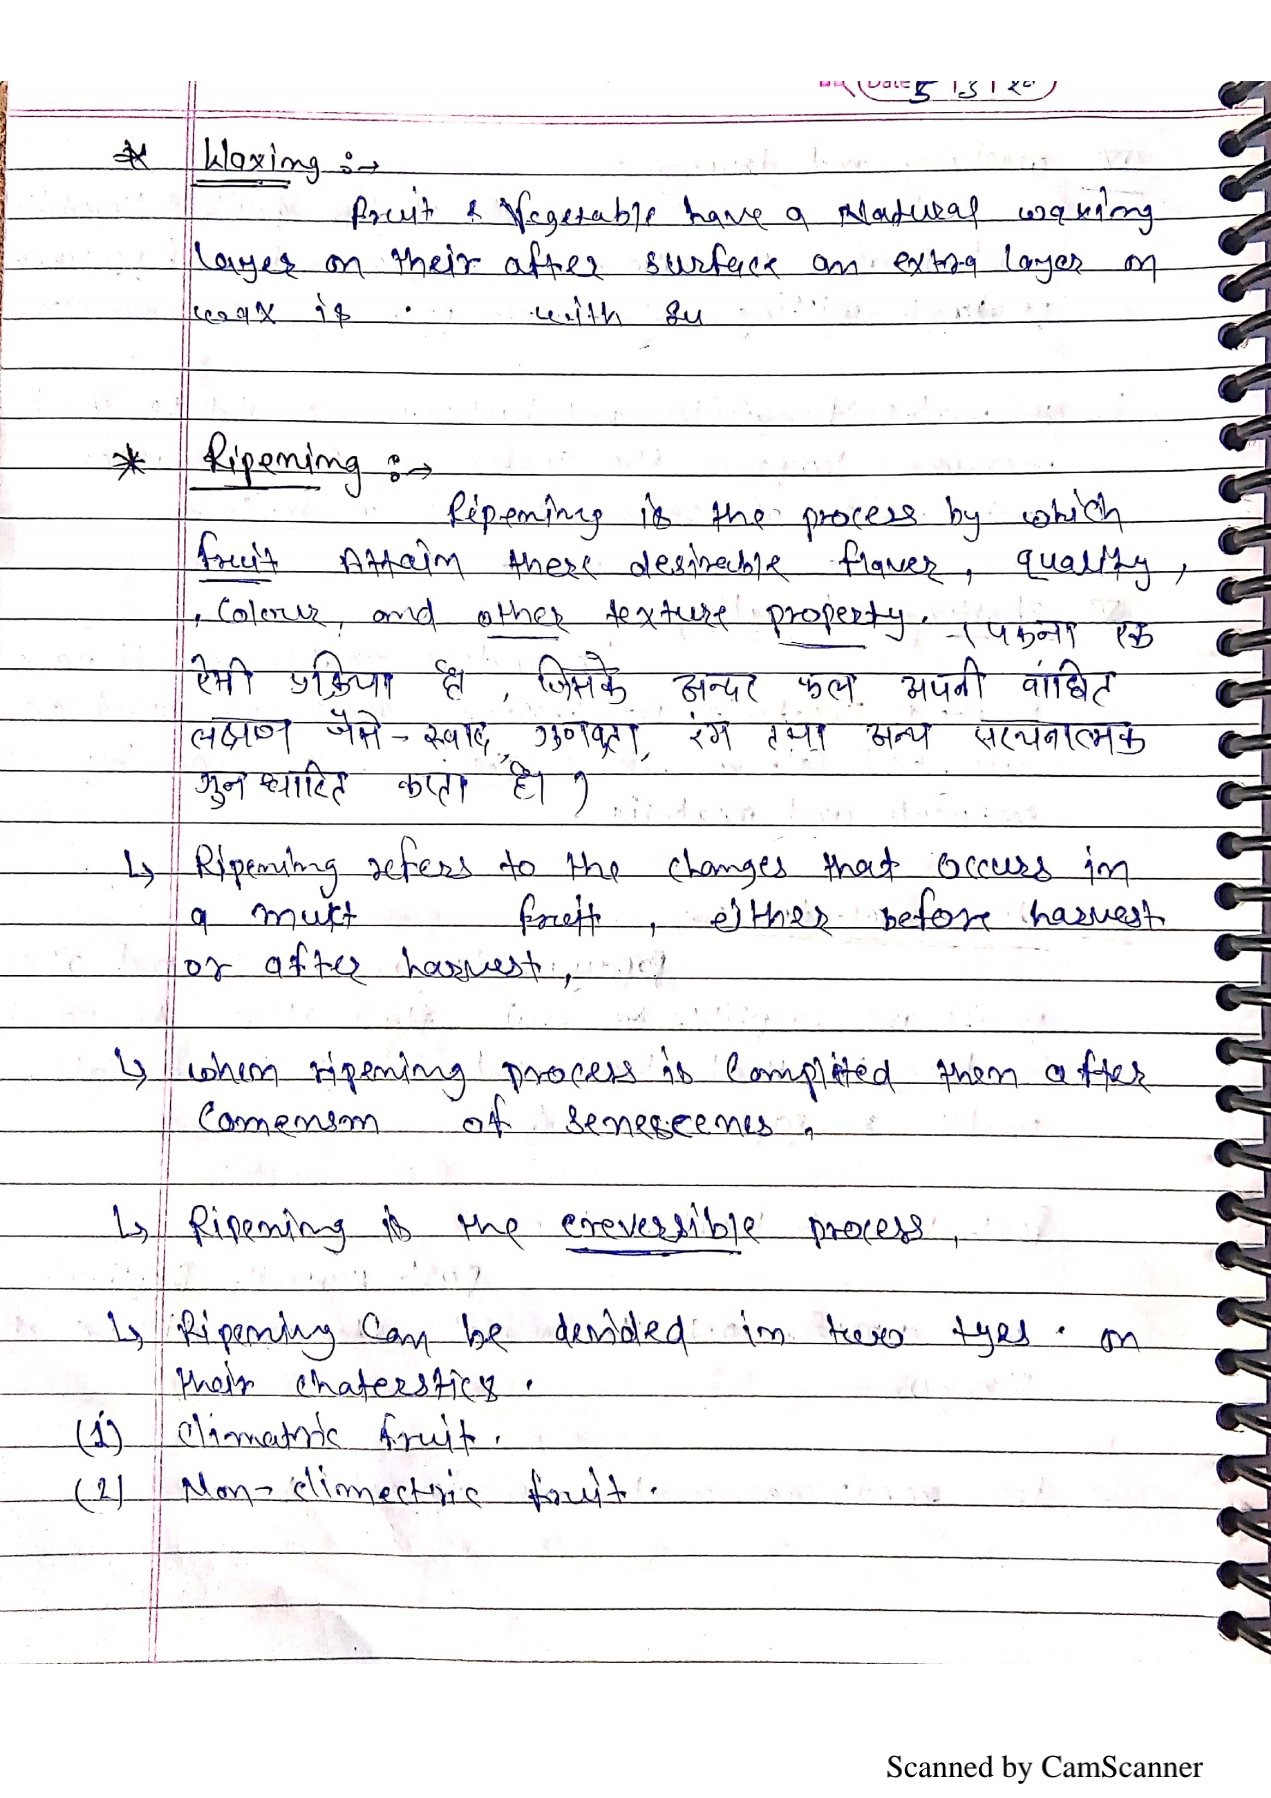 Date 5 | 3 | 20
* Waxing :→
fruit & Vegetable have a Natural waxing
layer on their after surface an extra layer on
wax is . with su
* Ripening :→
Ripening is the process by which
fruit Attain there desirable flaver, quality,
, Colour, and other texture property. -( पकना एक
ऐसी प्रक्रिया है। , जिसके अन्दर फल अपनी वांछित
लक्षण जैसे - स्वाद, गुणवत्ता, रंग तथा अन्य सरचनात्मक
गुन धारित करता है। )
↳ Ripening refers to the changes that occurs in
a mukt fruit, either before harvest
or after harvest,
↳ when ripening process is Complited then after
Comensm of senescenes.
↳ Ripening is the ereversible process,
↳ Ripening Can be devided in two tyes . on
their chaterstics.
(1) Climatric fruit.
(2) Non-climectric fruit.
Scanned by CamScanner